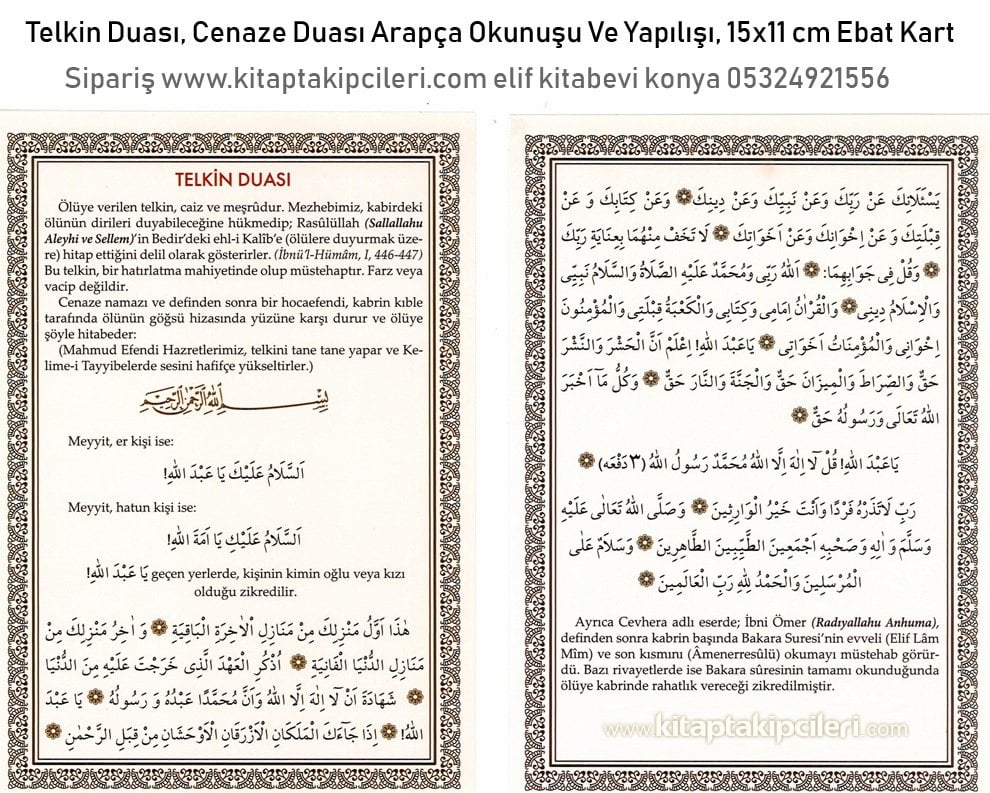 Telkin Duası, Cenaze Duası Arapça Okunuşu Ve Yapılışı, 15x11 cm Ebat Kart
Sipariş www.kitaptakipcileri.com elif kitabevi konya 05324921556
TELKİN DUASI
Ölüye verilen telkin, caiz ve meşrûdur. Mezhebimiz, kabirdeki
ölünün dirileri duyabileceğine hükmedip; Rasûlüllah (Sallallahu
Aleyhi ve Sellem)'in Bedir'deki ehl-i Kalîb'e (ölülere duyurmak üze-
re) hitap ettiğini delil olarak gösterirler. (İbnü'l-Hümâm, I, 446-447)
Bu telkin, bir hatırlatma mahiyetinde olup müstehaptır. Farz veya
vacip değildir.
Cenaze namazı ve definden sonra bir hocaefendi, kabrin kıble
tarafında ölünün göğsü hizasında yüzüne karşı durur ve ölüye
şöyle hitabeder:
(Mahmud Efendi Hazretlerimiz, telkini tane tane yapar ve Ke-
lime-i Tayyibelerde sesini hafifçe yükseltirler.)
بِسْمِ اللّٰهِ الرَّحْمٰنِ الرَّحِيمِ
Meyyit, er kişi ise:
اَلسَّلَامُ عَلَيْكَ يَا عَبْدَ اللّٰهِ!
Meyyit, hatun kişi ise:
اَلسَّلَامُ عَلَيْكِ يَا اَمَةَ اللّٰهِ!
يَا عَبْدَ اللّٰهِ! geçen yerlerde, kişinin kimin oğlu veya kızı
olduğu zikredilir.
هٰذَا اَوَّلُ مَنْزِلِكَ مِنْ مَنَازِلِ الْاٰخِرَةِ الْبَاقِيَةِ ۞ وَ اٰخِرُ مَنْزِلِكَ مِنْ
مَنَازِلِ الدُّنْيَا الْفَانِيَةِ ۞ اُذْكُرِ الْعَهْدَ الَّذِى خَرَجْتَ عَلَيْهِ مِنَ الدُّنْيَا
۞ شَهَادَةَ اَنْ لَا اِلٰهَ اِلَّا اللّٰهُ وَاَنَّ مُحَمَّدًا عَبْدُهُ وَ رَسُولُهُ ۞ يَا عَبْدَ
اللّٰهِ! ۞ اِذَا جَاءَكَ الْمَلَكَانِ الْاَزْرَقَانِ الْاَوْحَشَانِ مِنْ قِبَلِ الرَّحْمٰنِ ۞
يَسْئَلَانِكَ عَنْ رَبِّكَ وَعَنْ نَبِيِّكَ وَعَنْ دِينِكَ ۞ وَعَنْ كِتَابِكَ وَ عَنْ
قِبْلَتِكَ وَ عَنْ اِخْوَانِكَ وَعَنْ اَخَوَاتِكَ ۞ لَا تَخَفْ مِنْهُمَا بِعِنَايَةِ رَبِّكَ
۞ وَقُلْ فِى جَوَابِهِمَا: ۞ اَللّٰهُ رَبِّى وَمُحَمَّدٌ عَلَيْهِ الصَّلَاةُ وَالسَّلَامُ نَبِيِّى
وَالْاِسْلَامُ دِينِى ۞ وَالْقُرْاٰنُ اِمَامِى وَكِتَابِى وَالْكَعْبَةُ قِبْلَتِى وَالْمُؤْمِنُونَ
اِخْوَانِى وَالْمُؤْمِنَاتُ اَخَوَاتِى ۞ يَاعَبْدَ اللّٰهِ! اِعْلَمْ اَنَّ الْحَشْرَ وَالنَّشْرَ
حَقٌّ وَالصِّرَاطَ وَالْمِيزَانَ حَقٌّ وَالْجَنَّةَ وَالنَّارَ حَقٌّ ۞ وَكُلُّ مَا اَخْبَرَ
اللّٰهُ تَعَالَى وَرَسُولُهُ حَقٌّ ۞
يَاعَبْدَ اللّٰهِ! قُلْ لَا اِلٰهَ اِلَّا اللّٰهُ مُحَمَّدٌ رَسُولُ اللّٰهِ (٣ دَفْعَه) ۞
رَبِّ لَاتَذَرْهُ فَرْدًا وَاَنْتَ خَيْرُ الْوَارِثِينَ ۞ وَصَلَّى اللّٰهُ تَعَالَى عَلَيْهِ
وَسَلَّمَ وَ اٰلِهِ وَصَحْبِهِ اَجْمَعِينَ الطَّيِّبِينَ الطَّاهِرِينَ ۞ وَسَلَامٌ عَلَى
الْمُرْسَلِينَ وَالْحَمْدُ لِلّٰهِ رَبِّ الْعَالَمِينَ ۞
Ayrıca Cevhera adlı eserde; İbni Ömer (Radıyallahu Anhuma),
definden sonra kabrin başında Bakara Suresi'nin evveli (Elif Lâm
Mîm) ve son kısmını (Âmenerresûlü) okumayı müstehab görür-
dü. Bazı rivayetlerde ise Bakara sûresinin tamamı okunduğunda
ölüye kabrinde rahatlık vereceği zikredilmiştir.
www.kitaptakipcileri.com